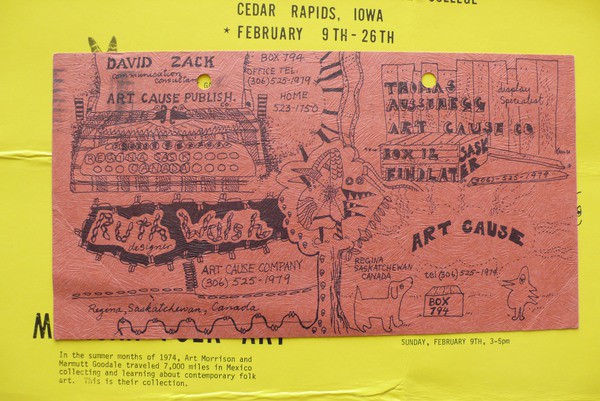 COLLEGE
CEDAR RAPIDS, IOWA
* FEBRUARY 9TH-26TH
DAVID ZACK
communication
consultant
ART CAUSE PUBLISH.
BOX 794
OFFICE TEL
(306) 525-1979
HOME
523-1750
REGINA SASK
CANADA
THOMAS
display
Specialist
ART CAUSE CO
BOX 12 SASK
FINDLATER
(306)-525-1979
Ruth Walsh
designer
ART CAUSE COMPANY
(306) 525-1979
Regina, Saskatchewan, Canada
ART CAUSE
REGINA
SASKATCHEWAN
CANADA
tel (306) 525-1974
BOX
794
FOLK ART
In the summer months of 1974, Art Morrison and
Marmutt Goodale traveled 7,000 miles in Mexico
collecting and learning about contemporary folk
art. This is their collection.
SUNDAY, FEBRUARY 9TH, 3-5pm